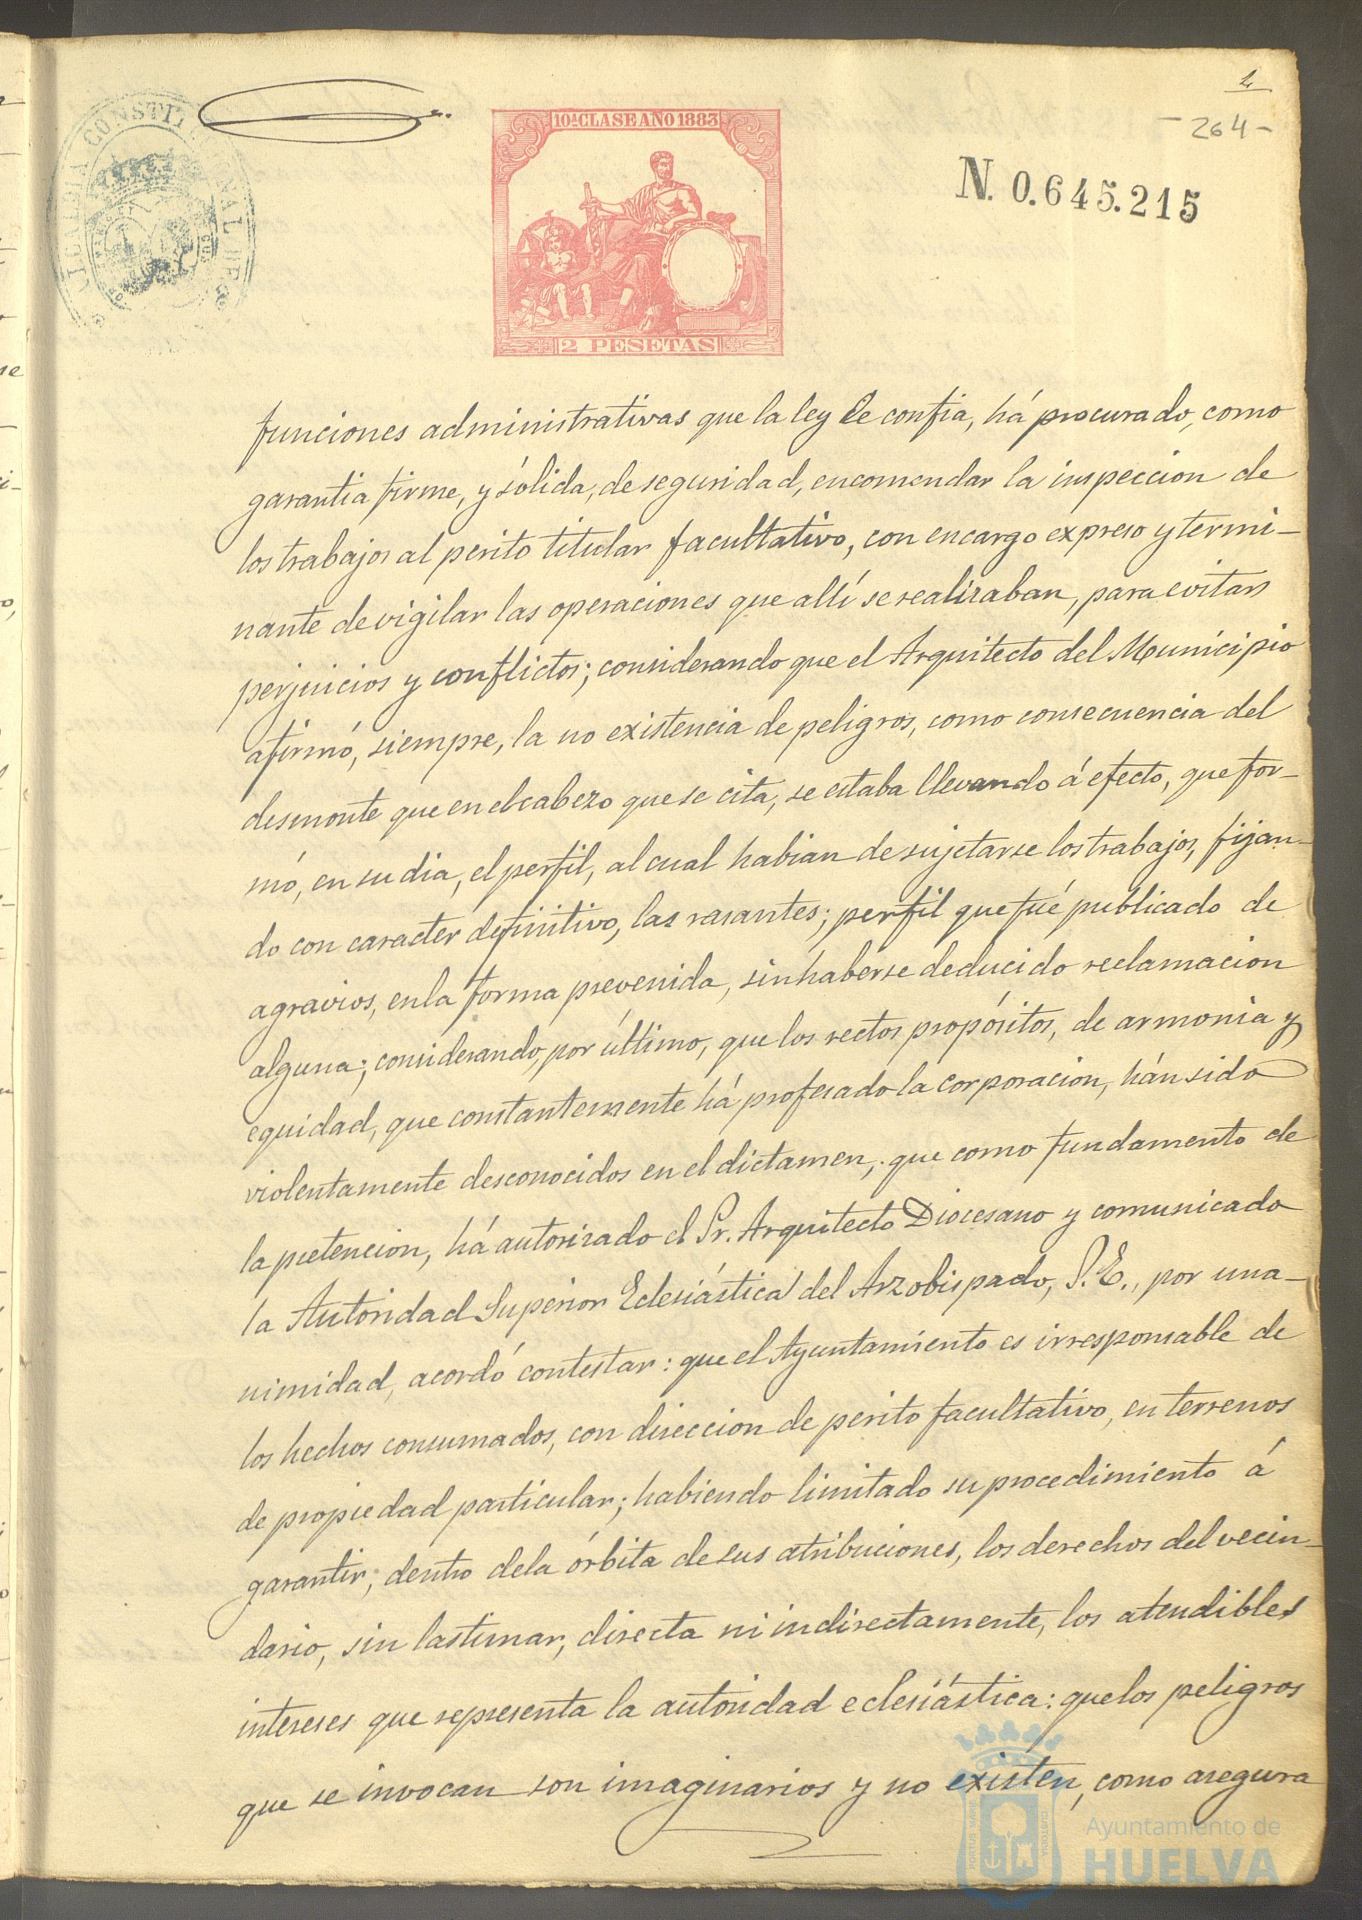 2
- 264 -
ALCALDIA CONSTITUCIONAL
10ª CLASE AÑO 1883
N. 0.645.215
2 PESETAS
funciones administrativas que la ley le confia, há procurado, como
garantia firme, y sólida, de seguridad, encomendar la inspeccion de
los trabajos al perito titular facultativo, con encargo expreso y termi-
nante de vigilar las operaciones que allí se realizaban, para evitar
perjuicios y conflictos; considerando que el Arquitecto del Municipio
afirmó, siempre, la no existencia de peligros, como consecuencia del
desmonte que en el cabezo que se cita, se estaba llevando á efecto, que for-
mó, en su dia, el perfil, al cual habian de sujetarse los trabajos, fijan-
do con caracter definitivo, las rasantes; perfil que fué publicado de
agravios, en la forma prevenida, sin haberse deducido reclamacion
alguna; considerando, por último, que los rectos propósitos, de armonia y
equidad, que constantemente há profesado la corporacion, hán sido
violentamente desconocidos en el dictamen, que como fundamento de
la pretencion, há autorizado el Sr. Arquitecto Diocesano y comunicado
la Autoridad Superior Eclesiástica del Arzobispado, S.E., por una-
nimidad, acordó contestar: que el Ayuntamiento es irresponsable de
los hechos consumados, con direccion de perito facultativo, en terrenos
de propiedad particular; habiendo limitado su procedimiento á
garantir, dentro de la órbita de sus atribuciones, los derechos del vecin-
dario, sin lastimar, directa ni indirectamente, los atendibles
intereses que representa la autoridad eclesiástica: que los peligros
que se invocan son imaginarios y no existen, como asegura
PORTUS MARIS
CUSTODIA
Ayuntamiento de
HUELVA